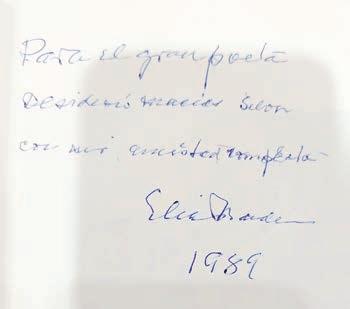 Para el gran poeta
Desiderio Macías Silva
con mi amistad completa
Elías Nandino
1989